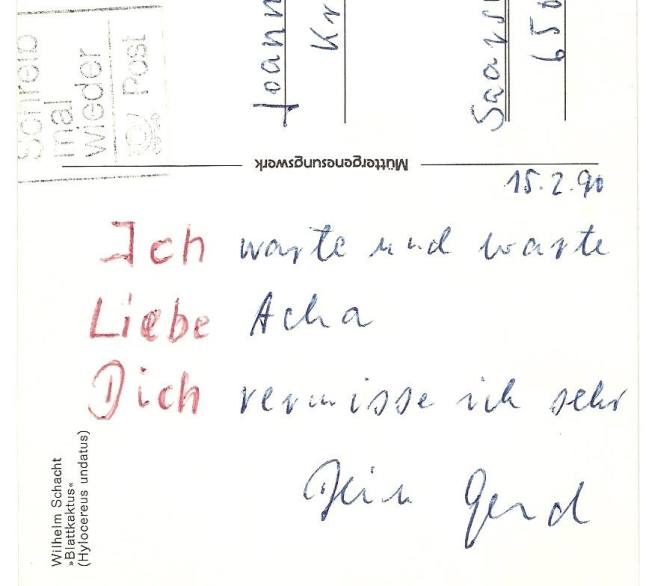 Schreib
mal
wieder
Post
Joann
Kr
Saars
656
Müttergenesungswerk
15.2.90
Ich warte und warte
Liebe Acha
Dich vermisse ich sehr
Dein Gerd
Wilhelm Schacht
»Blattkaktus«
(Hylocereus undatus)